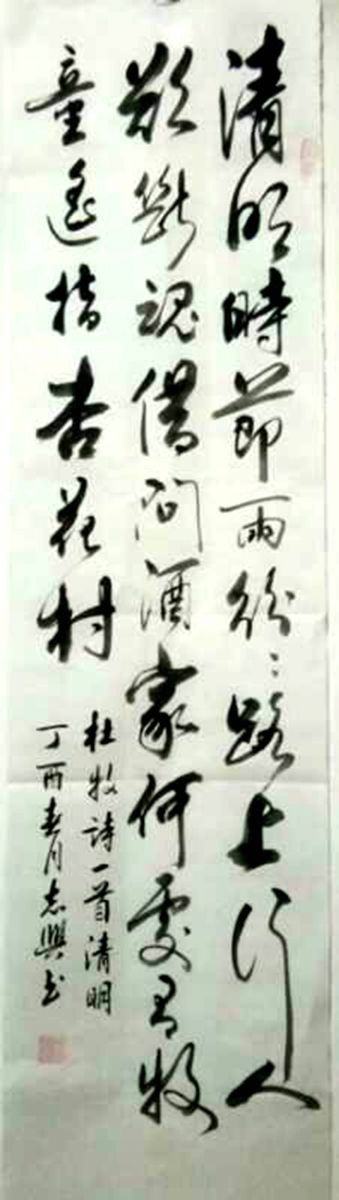 清明時節雨紛〻路上行人
欲斷魂借問酒家何處有牧
童遥指杏花村
杜牧詩一首清明
丁酉春月志興書